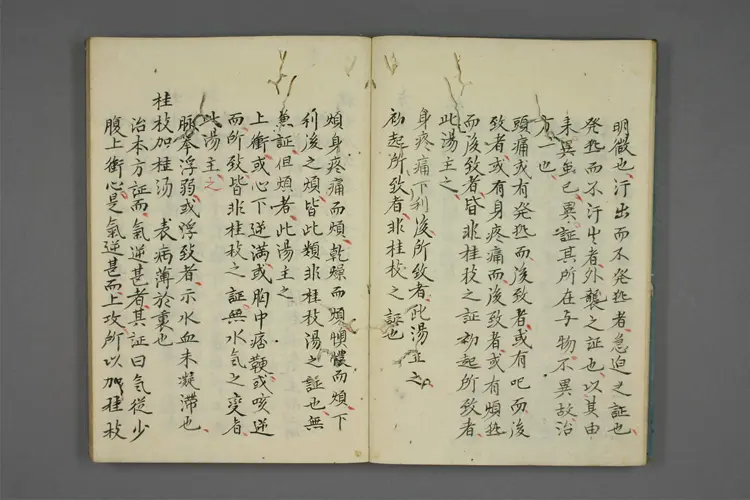 明徴也汗出而不発熱者急迫之証也
発熱而不汗出者外襲之証也以其由
来異虽已異証其所在与物不異故治
方一也
頭痛或有発熱而後致者或有吃而後
致者或有身疼痛而後致者或有煩熱
而後致者皆非桂枝之証初起所致者
此湯主之
身疼痛下利後所致者此湯主之
初起所致者非桂枝之証也
煩身疼痛而煩乾燥而煩懊憹而煩下
利後之煩皆此類非桂枝湯之証也無
兼証但煩者此湯主之
上衝或心下逆満或胸中痞鞕或咳逆
而所致皆非桂枝之証無水気之変者
此湯主之
脉本浮弱或浮数者示水血未凝滞也
桂枝加桂湯 表病薄於裏也
治本方証而氣逆甚者其証曰気従少
腹上衝心是氣逆甚而上攻所以加桂枝